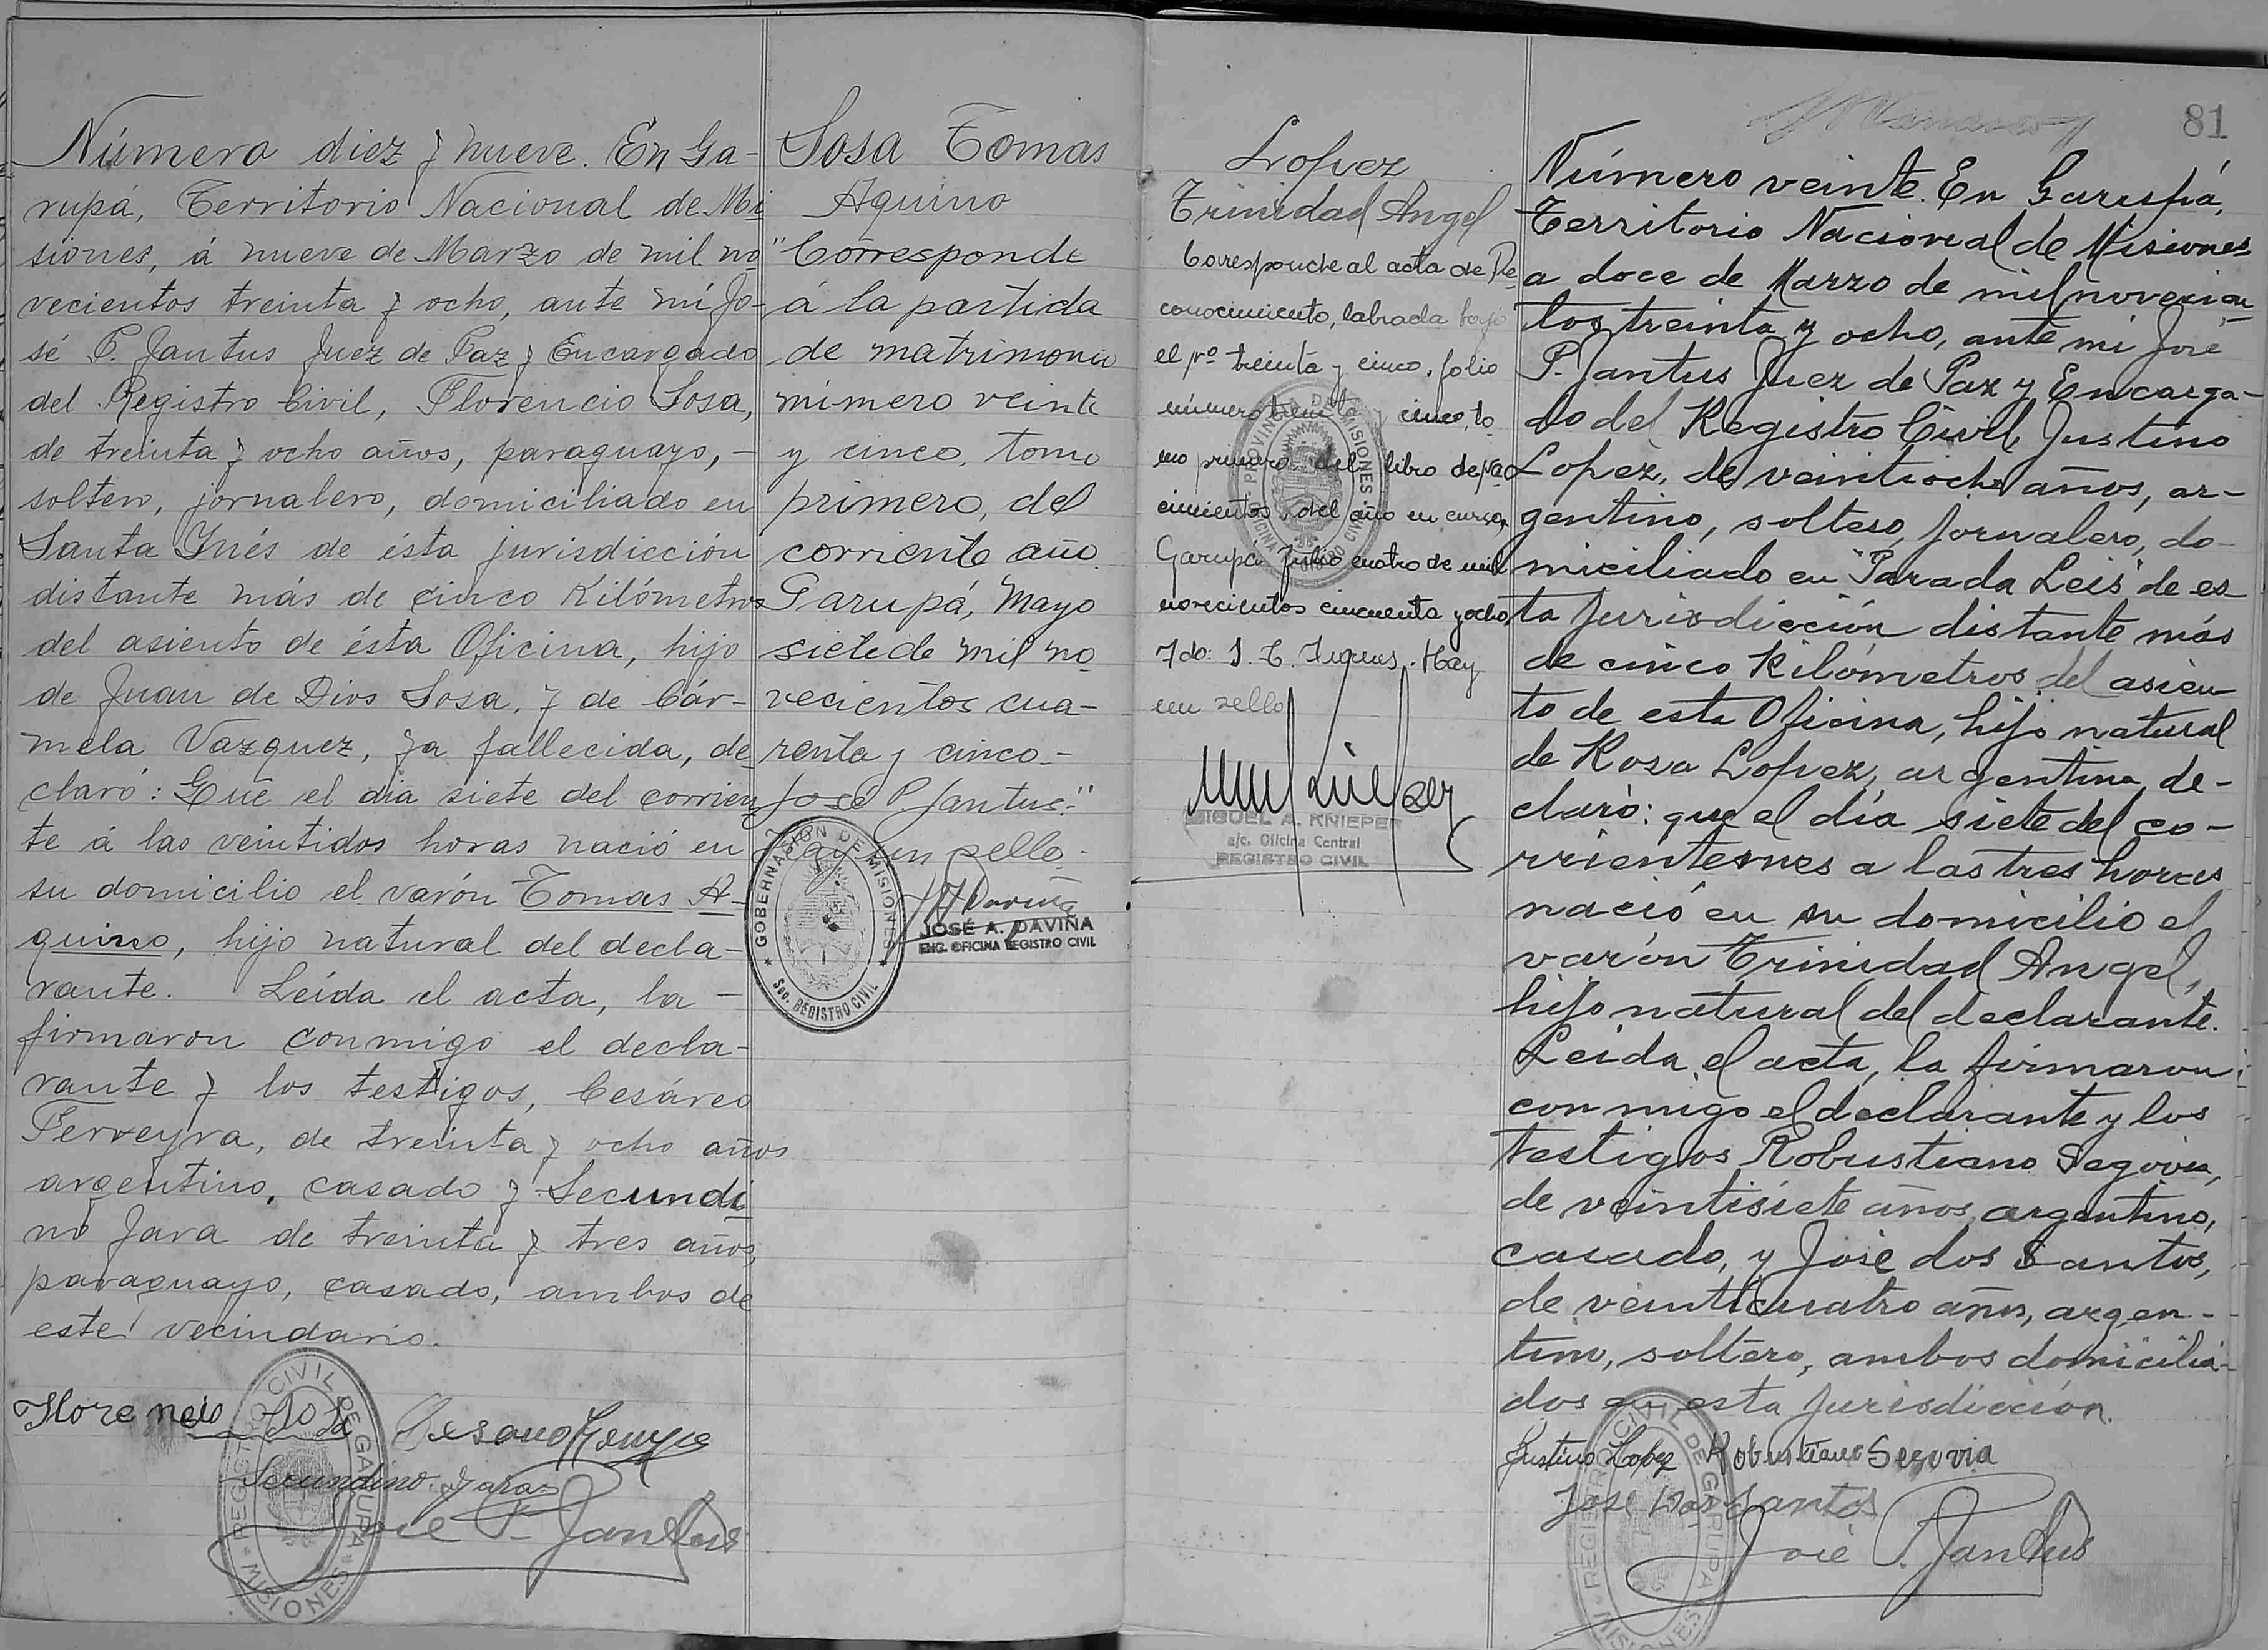 Número diez y nueve. En Ga-
rupá, Territorio Nacional de Mi
siones, á nueve de Marzo de mil no
vecientos treinta y ocho, ante mí Jo-
sé P. Jantus Juez de Paz y Encargado
del Registro Civil, Florencio Sosa,
de treinta y ocho años, paraguayo, -
soltero, jornalero, domiciliado en
Santa Inés de ésta jurisdicción
distante más de cinco Kilómetros
del asiento de ésta Oficina, hijo
de Juan de Dios Sosa, y de Cár-
mela Vazquez, ya fallecida, de
claró: Que el dia siete del corrien
te á las veintidos horas nació en
su domicilio el varón Tomas A-
quino, hijo natural del decla-
rante. Leída el acta, la -
firmaron conmigo el decla-
rante y los testigos, Cesáreo
Ferreyra, de treinta y ocho años
argentino, casado y Secundi
no Jara de treinta y tres años,
paraguayo, casado, ambos de
este vecindario.
Florencio Sosa
Secundino Jara
José P. Jantus
REGISTRO CIVIL DE GARUPA
MISIONES
Sosa Tomas
Aquino
"Corresponde
á la partida
de matrimonio
número veinte
y cinco, tomo
primero, del
corriente año.
Garupá, Mayo
siete de mil no
vecientos cua-
renta y cinco.-
José P. Jantus."
Hay un sello.-
GOBERNACION DE MISIONES
Sec. REGISTRO CIVIL
JOSÉ A. DAVIÑA
ENC. OFICINA REGISTRO CIVIL
Lopez
Trinidad Angel
Corresponde al acta de Re
conocimiento, labrada bajo
el Nº treinta y cinco, folio
número treinta y cinco, to
mo primero del libro de Na
cimientos del año en curso,
Garupá Julio cuatro de mil
novecientos cincuenta y ocho
Fdo: Hay
un sello
PROVINCIA DE MISIONES
MIGUEL A. KNIEPER
a/c. Oficina Central
REGISTRO CIVIL
81
Número veinte. En Garupá,
Territorio Nacional de Misiones
a doce de Marzo de mil novecien
tos treinta y ocho, ante mi José
P. Jantus Juez de Paz y Encarga-
do del Registro Civil, Justino
Lopez, de veintiocho años, ar-
gentino, soltero, jornalero, do-
miciliado en "Parada Leis" de es-
ta Jurisdicción distante más
de cinco Kilómetros del asien
to de esta Oficina, hijo natural
de Rosa Lopez, argentina, de-
claró: que el día siete del co-
rriente mes a las tres horas
nació en su domicilio el
varón Trinidad Angel,
hijo natural del declarante.
Leida el acta, la firmaron
con migo el declarante y los
testigos Robustiano Segovia,
de veintisiete años, argentino,
casado, y José dos Santos,
de veinticuatro años, argen-
tino, soltero, ambos domicilia-
dos en esta Jurisdicción.
Justino Lopez Robustiano Segovia
José Dos Santos
José P. Jantus
REGISTRO CIVIL DE GARUPA
MISIONES